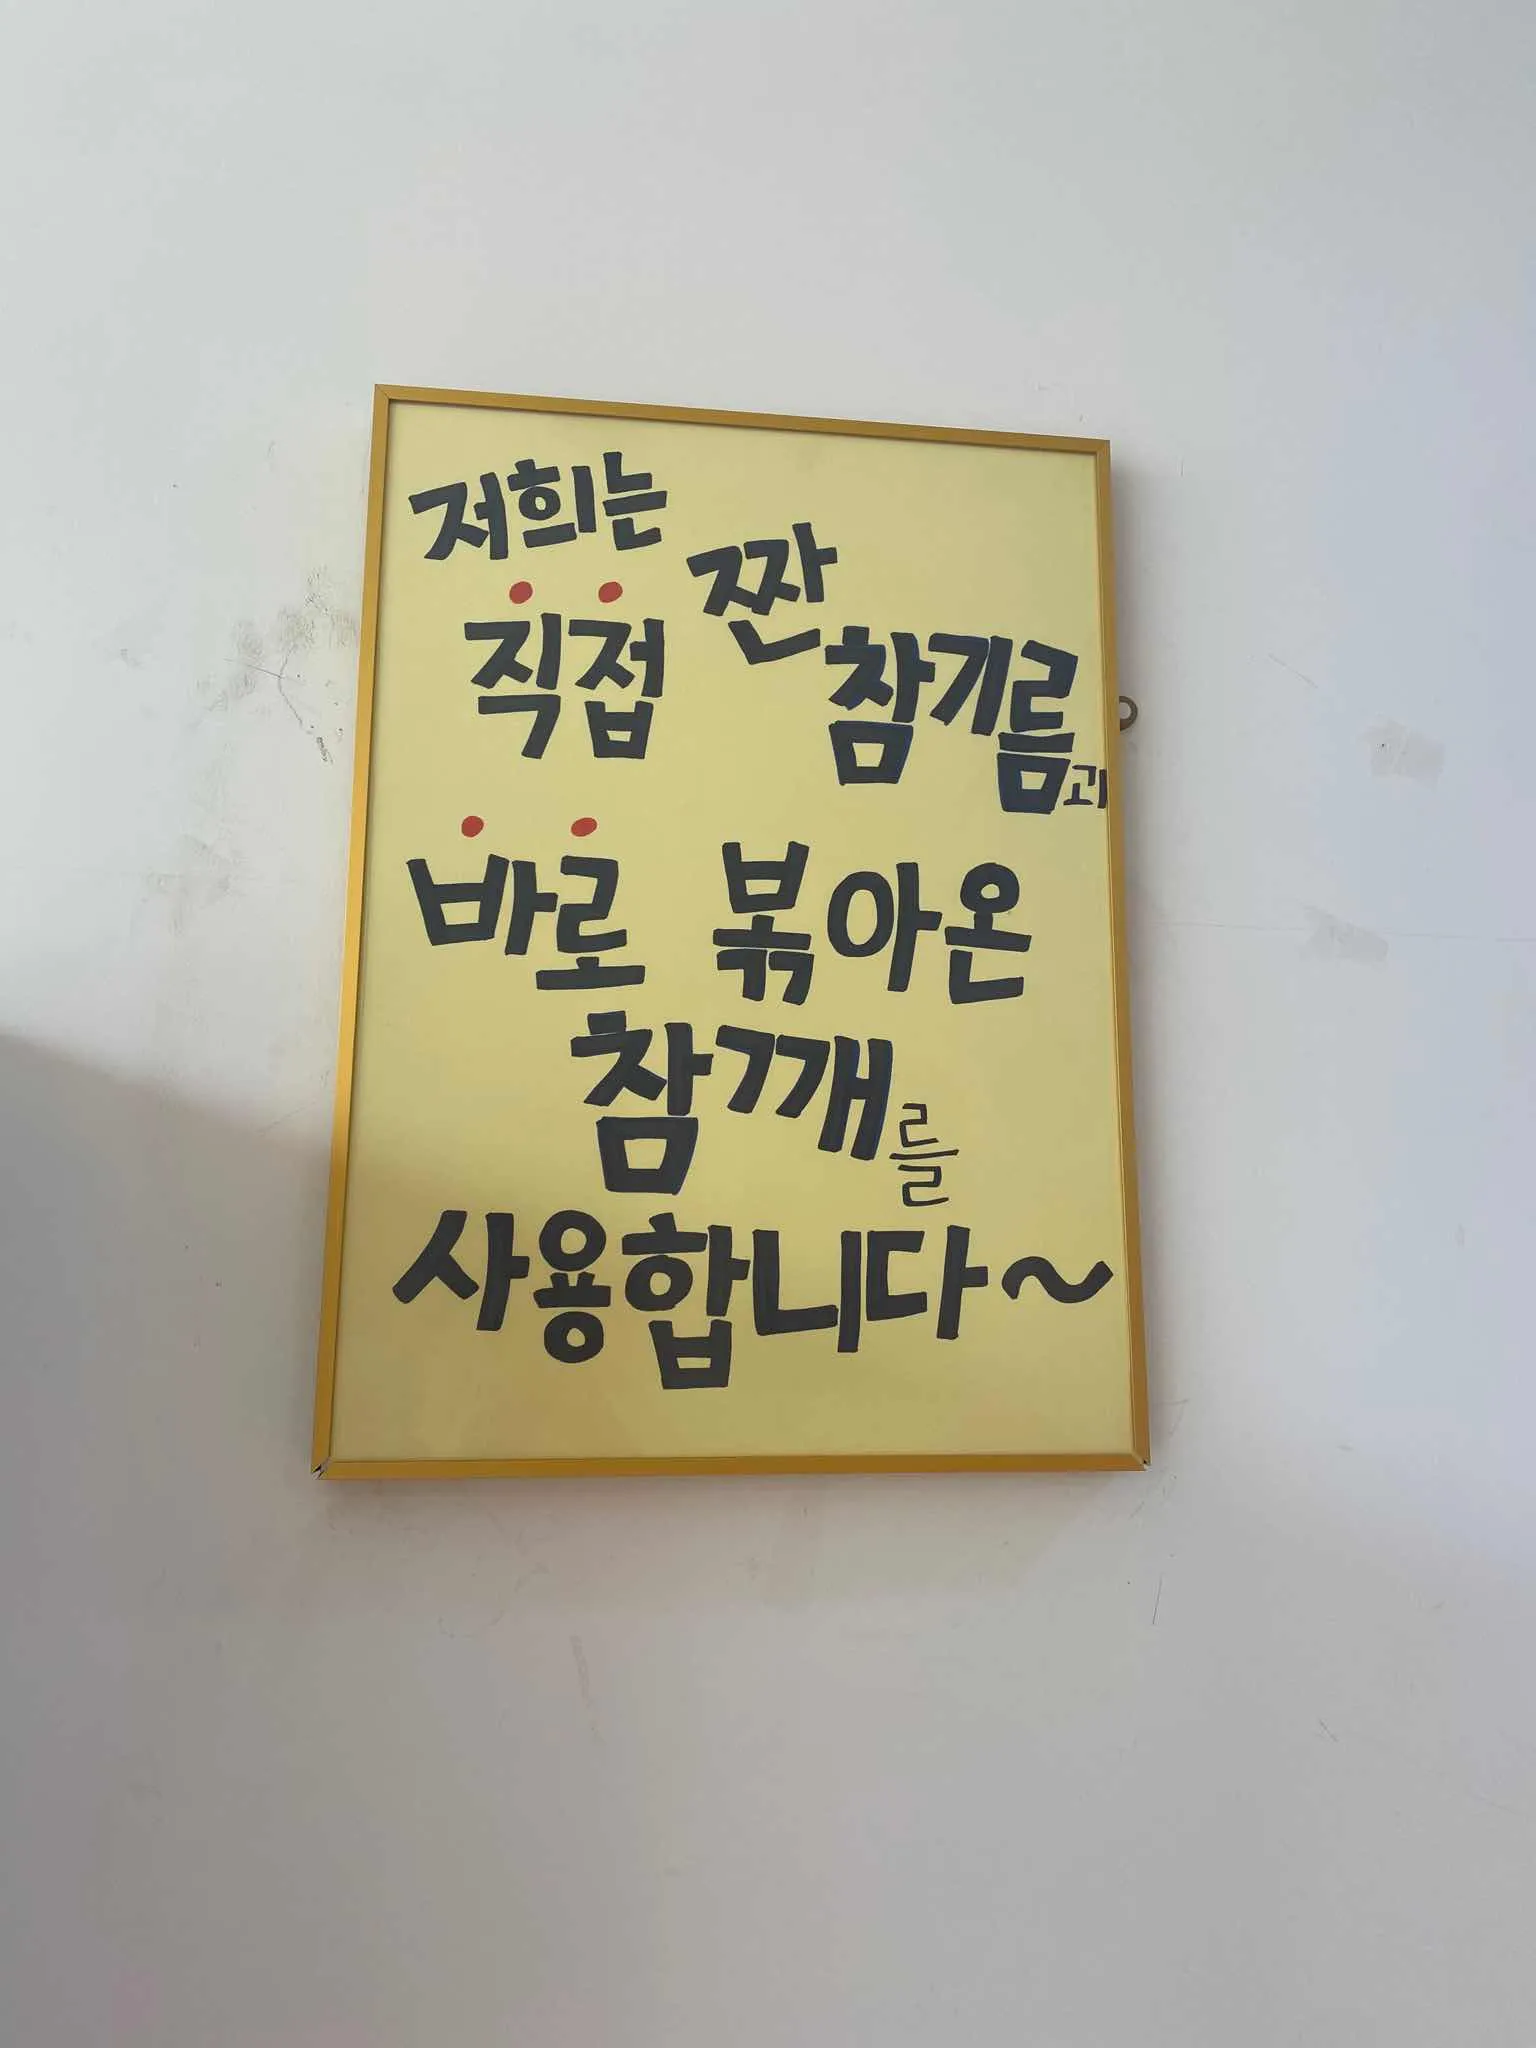 저희는
직접 짠 참기름과
바로 볶아온
참깨를
사용합니다~